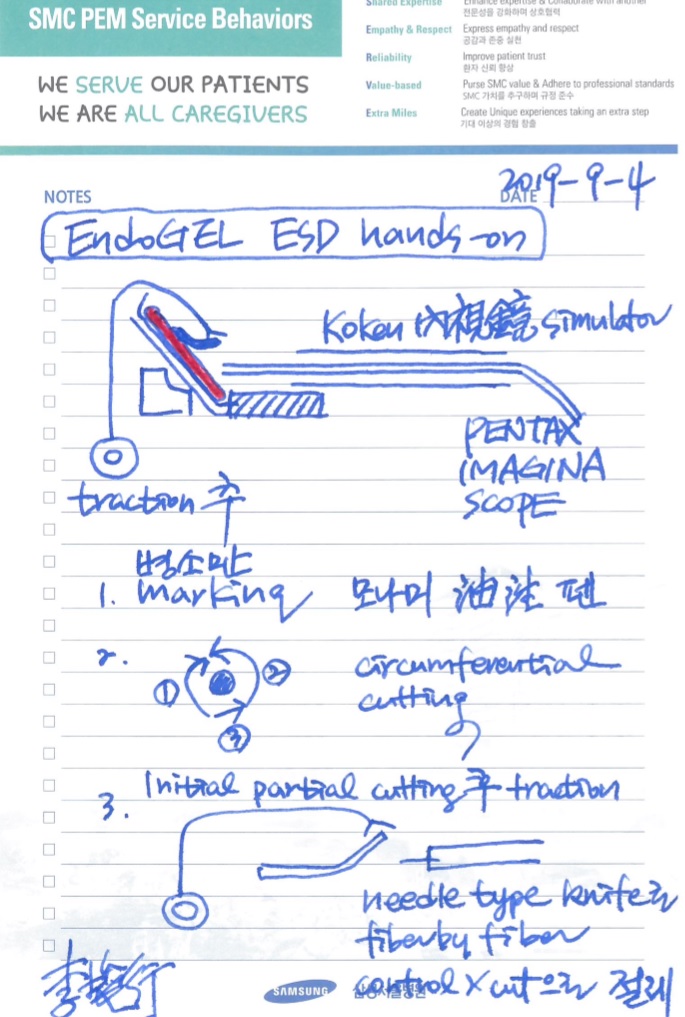 SMC PEM Service Behaviors
WE SERVE OUR PATIENTS
WE ARE ALL CAREGIVERS
Shared Expertise Enhance expertise & Collaborate with another
전문성을 강화하며 상호협력
Empathy & Respect Express empathy and respect
공감과 존중 실천
Reliability Improve patient trust
환자 신뢰 향상
Value-based Purse SMC value & Adhere to professional standards
SMC 가치를 추구하며 규정 준수
Extra Miles Create Unique experiences taking an extra step
기대 이상의 경험 창출
NOTES
DATE 2019-9-4
EndoGEL ESD hands-on
Koken 內視鏡 simulator
PENTAX
IMAGINA
SCOPE
traction 추
병소만
1. marking 모나미 油性 펜
2. ① ② ③ circumferential
cutting
3. Initial partial cutting 후 traction
needle type knife로
fiber by fiber
control X cut으로 절제
SAMSUNG 삼성서울병원